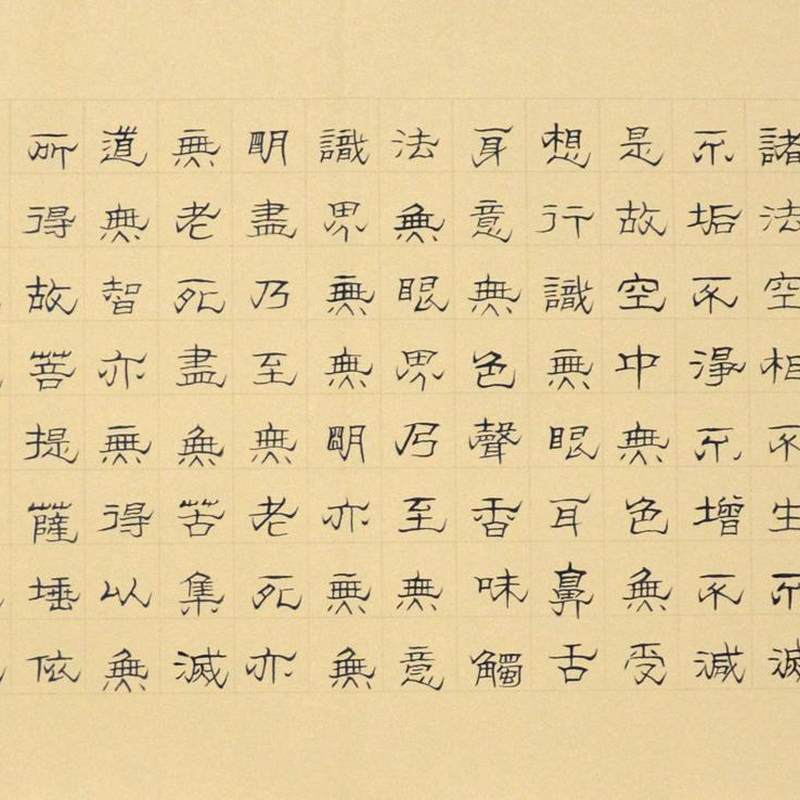 諸法空相不生不滅
不垢不淨不增不減
是故空中無色無受
想行識無眼耳鼻舌
身意無色聲香味觸
法無眼界乃至無意
識界無無明亦無無
明盡乃至無老死亦
無老死盡無苦集滅
道無智亦無得以無
所得故菩提薩埵依